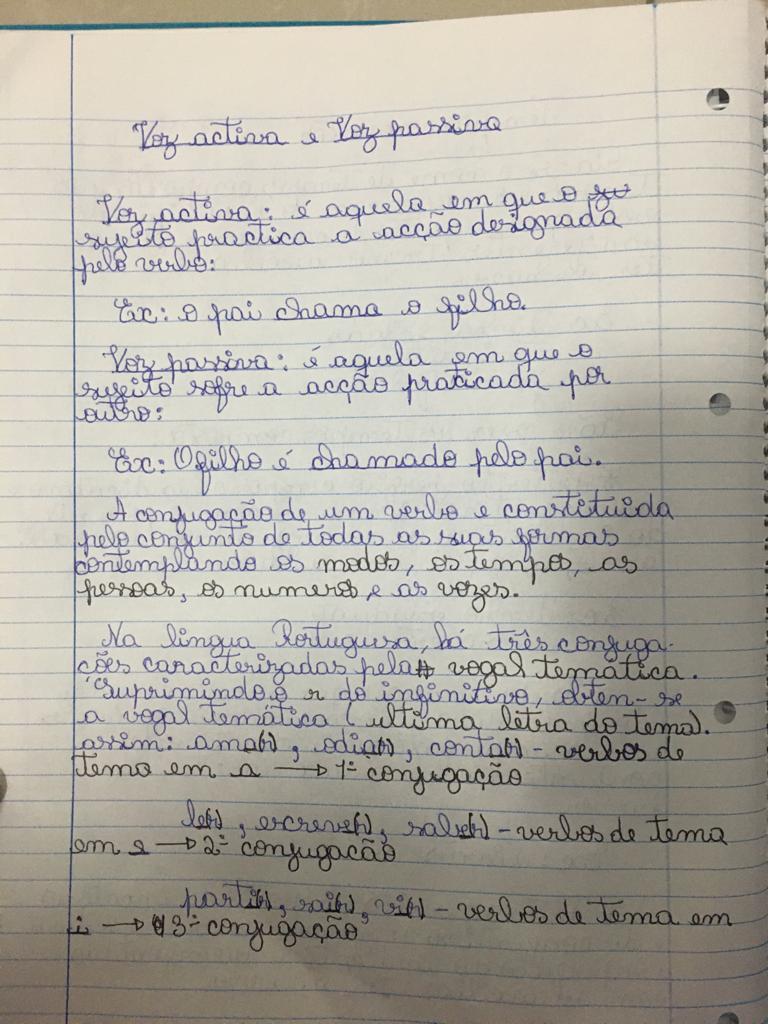 Voz activa e Voz passiva
Voz activa: é aquela em que o su
sujeito practica a acção designada
pelo verbo:
Ex: o pai chama o filho.
Voz passiva: é aquela em que o
sujeito sofre a acção praticada por
outro:
Ex: O filho é chamado pelo pai.
A conjugação de um verbo e constituida
pelo conjunto de todas as suas formas
contemplando os modos, os tempos, as
pessoas, os numeros, e as vozes.
Na lingua Portuguesa, há três conjuga-
ções caracterizadas pela vogal temática.
Suprimindo o r do infinitivo, obten-se
a vogal temática (ultima letra do tema).
assim: ama(r), odia(r), conta(r) - verbos de
tema em a → 1ª conjugação
le(r), escreve(r), sabe(r) - verbos de tema
em e → 2ª conjugação
parti(r), sai(r), vi(r) - verbos de tema em
i → 3ª conjugação